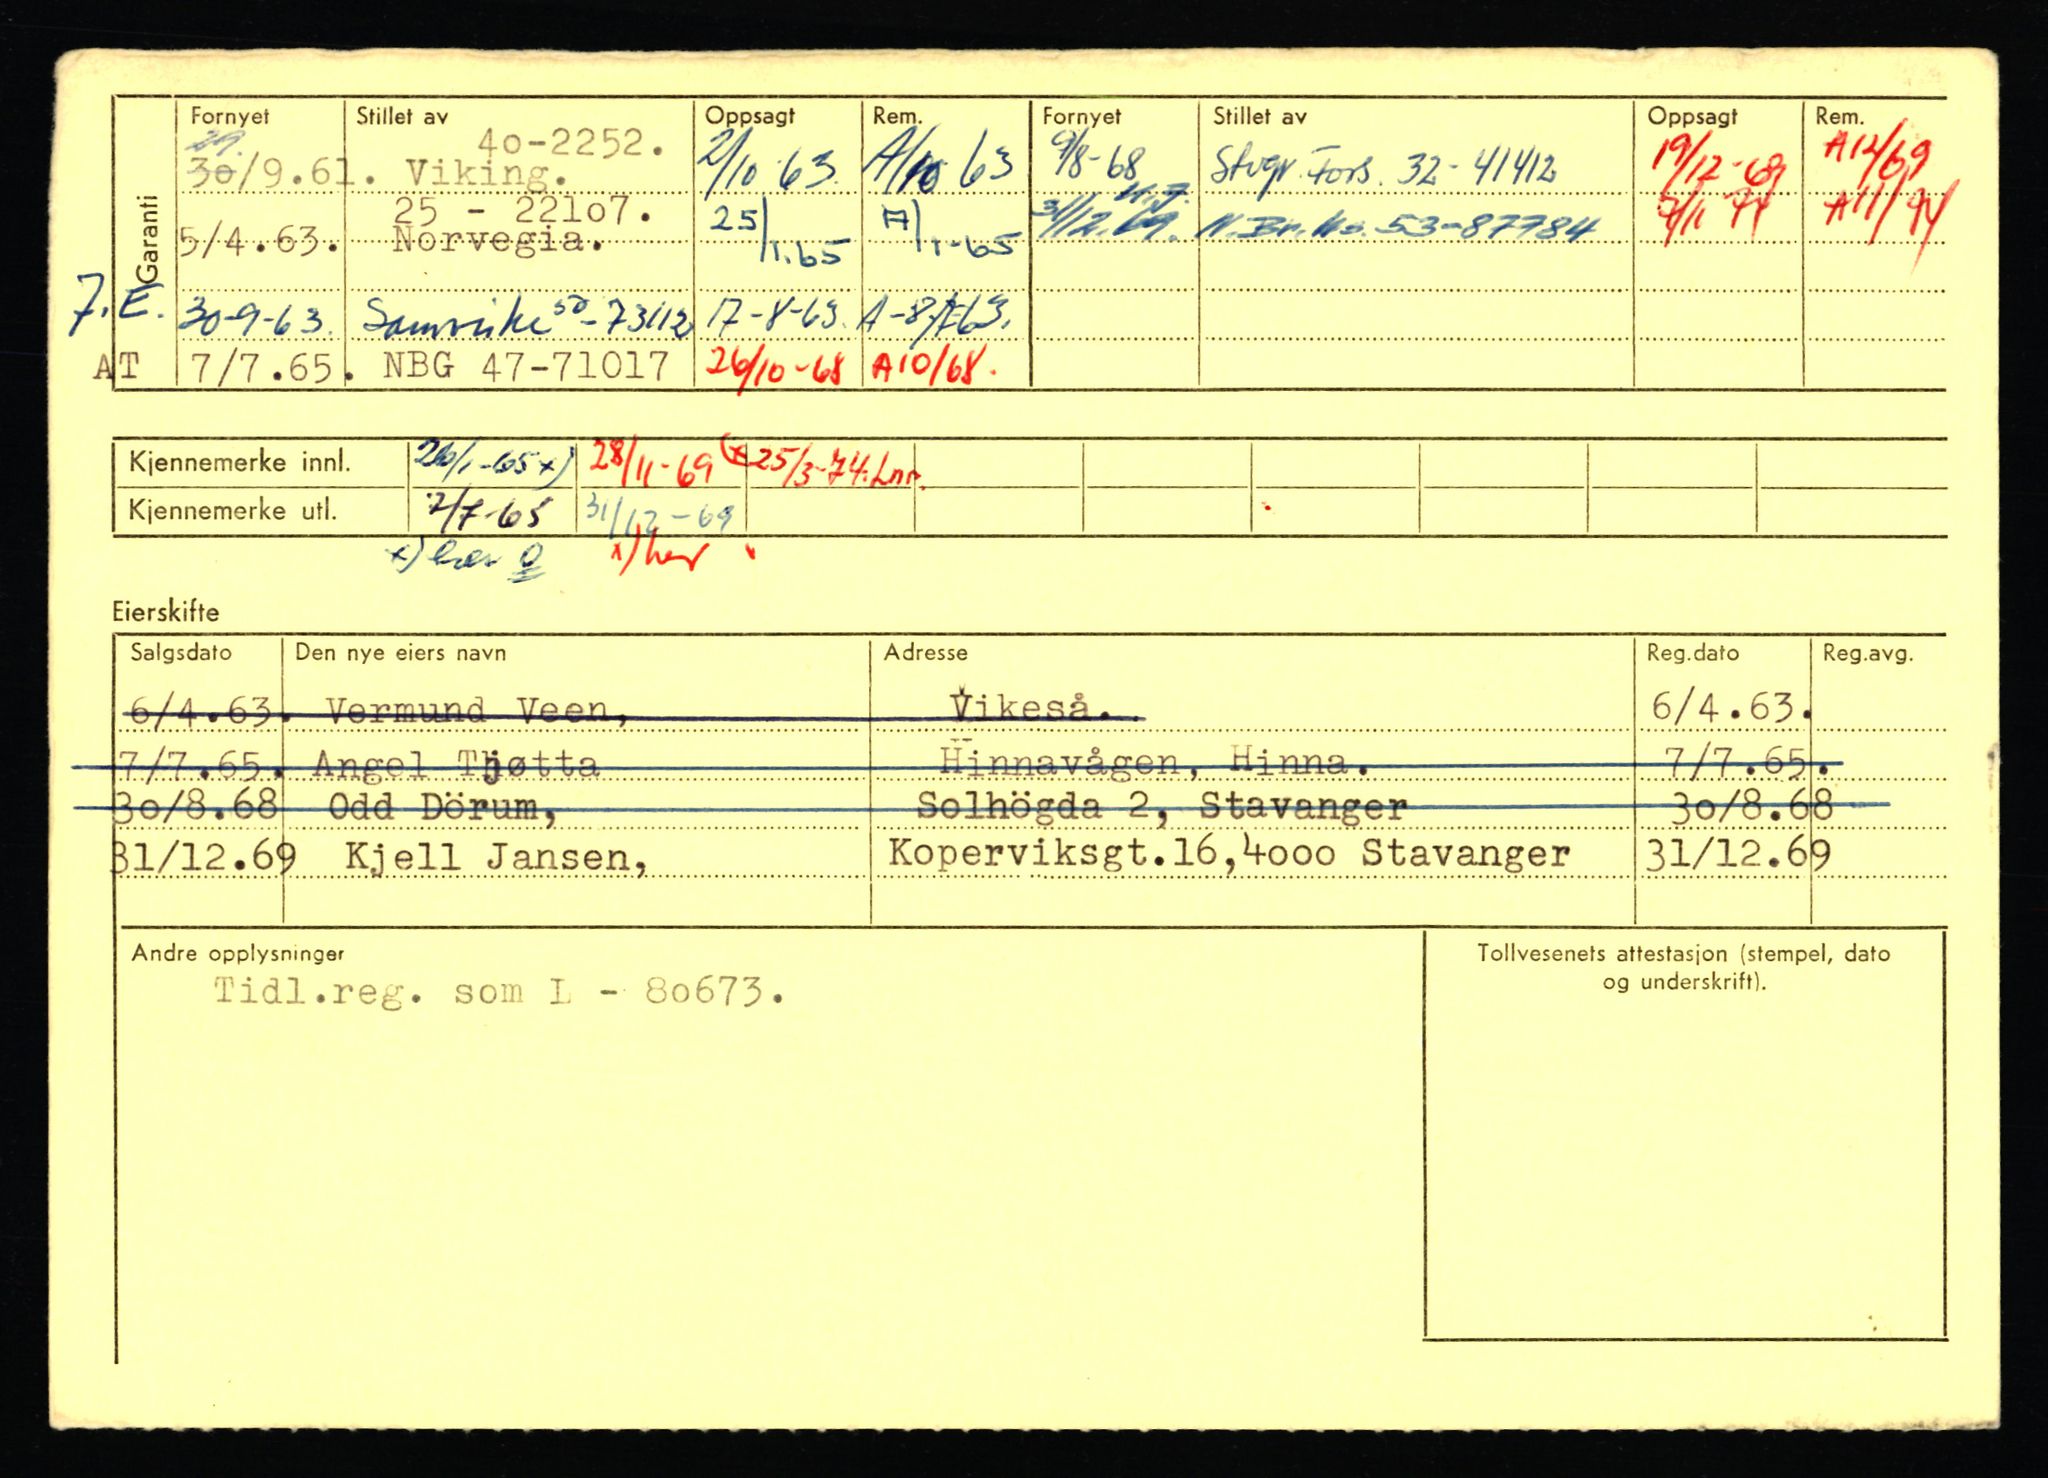 Garanti
Fornyet Stillet av Oppsagt Rem. Fornyet Stillet av Oppsagt Rem.
29.
40-2252.
30/9.61. Viking. 2/10 63. A/10 63 9/8-68 Stvgr. Fors. 32-41412 19/12-69 A12/69
25 - 22107.
5/4.63. Norvegia. 25/1.65 A/1-65 31/12.69. 53-87784 A11/
7.E. 30-9-63. Samvirke 50-73112 17-8-63.
AT 7/7.65. NBG 47-71017 26/10-68 A10/68.
Kjennemerke innl. 26/1-65 x) 28/11-69 (x 25/3-74. Lnr.
Kjennemerke utl. 7/7-65 31/12-69
x) her x) her
Eierskifte
Salgsdato Den nye eiers navn Adresse Reg.dato Reg.avg.
6/4.63. Vermund Veen, Vikeså. 6/4.63.
7/7.65. Angel Tjøtta Hinnavågen, Hinna. 7/7.65.
30/8.68 Odd Dörum, Solhögda 2, Stavanger 30/8.68
31/12.69 Kjell Jansen, Koperviksgt.16,4000 Stavanger 31/12.69
Andre opplysninger
Tidl.reg. som L - 80673.
Tollvesenets attestasjon (stempel, dato
og underskrift).